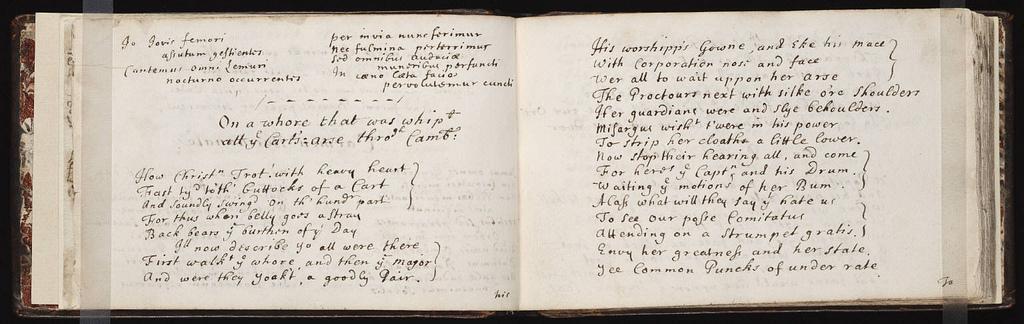 Io Jovis femori
astutum gestientes
Cantemus omni Lemuri
nocturno occurrentes
per invia nunc ferimur
nec fulmina perterrimur
Sed omnibus audaciæ
muneribus perfuncti
In cæno læta facie
pervolutemur cuncti
On a whore that was whipt
all yͤ Carts-arse throᵗ Cambᵉ:
How Christⁿ Trot: with heavy heart
Fast ty'd to th' Buttocks of a Cart
And soundly swing'd on th' hundʳ part
For thus when belly goes astray
Back bears yͤ burthen of yͤ Day
I'll now describe yo all were there
First walk't yͤ whore and then yͤ major
And were they yoakt, a goodly Pair.
his
His worshipps Gowne, and Eke his mace
With Corporation nose and face
Wer all to wait uppon her arse
The Proctours next with silke o're shoulders
Her guardians were and slye behoulders.
Misargus wisht t'were in his power
To strip her cloaths a little lower.
Now stop their hearing all, and come
For heros yͤ Captⁿ and his Drum.
Waiting yͤ motions of her Bum.
Alass what will they say yͭ hate us
To see our posse Comitatus
Attending on a strumpet gratis.
Envy her greatness and her state
Yee Common Puncks of under rate
To